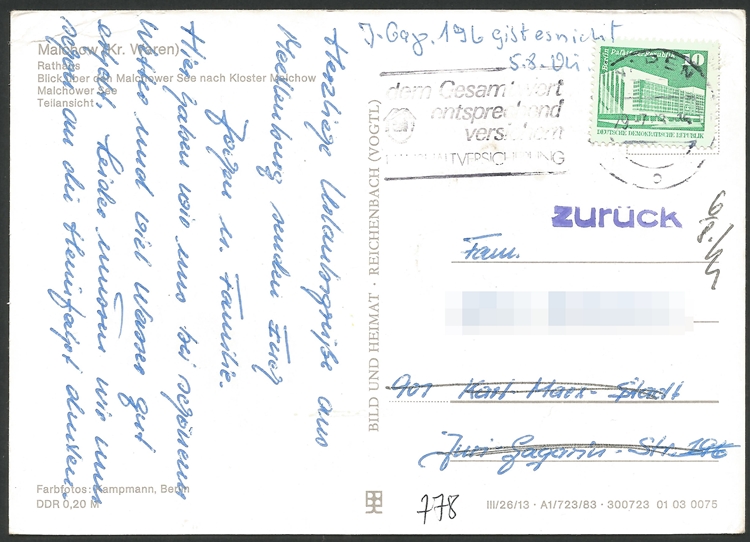 Malchow (Kr. Waren)
Rathaus
Blick über den Malchower See nach Kloster Malchow
Malchower See
Teilansicht
Herzliche Urlaubsgrüße aus
Mecklenburg senden Euch
Jürgen u. Familie.
Hier haben wir uns bei schönem
Wetter und viel Wasser gut
erholt. Leider müssen wir nun
schon an die Heimfahrt denken.
Farbfotos: Kampmann, Berlin
DDR 0,20 M
BILD UND HEIMAT · REICHENBACH (VOGTL)
J. Gag. 196 gibt es nicht
5.8.
dem Gesamtwert
entsprechend
versichern
HAUSHALTVERSICHERUNG
Berlin, Palast der Republik
10
DEUTSCHE DEMOKRATISCHE REPUBLIK
zurück
Fam.
901 Karl-Marx-Stadt
Juri-Gagarin-Str. 196
778
III/26/13 · A1/723/83 · 300723 01 03 0075